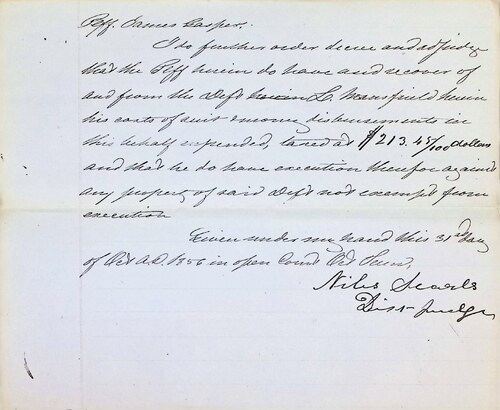 Plff. James Casper.
I do further order decree and adjudge
that the Plff herein do have and recover of
and from the Deft L. Mansfield herein
his costs of suit & money disbursements in
this behalf expended, taxed at $213.45/100 dollars
and that he do have execution therefor against
any property of said Deft not exempt from
execution
Given under my hand this 31st day
of Oct A.D. 1856 in open Court
Niles Searls
Dist Judge